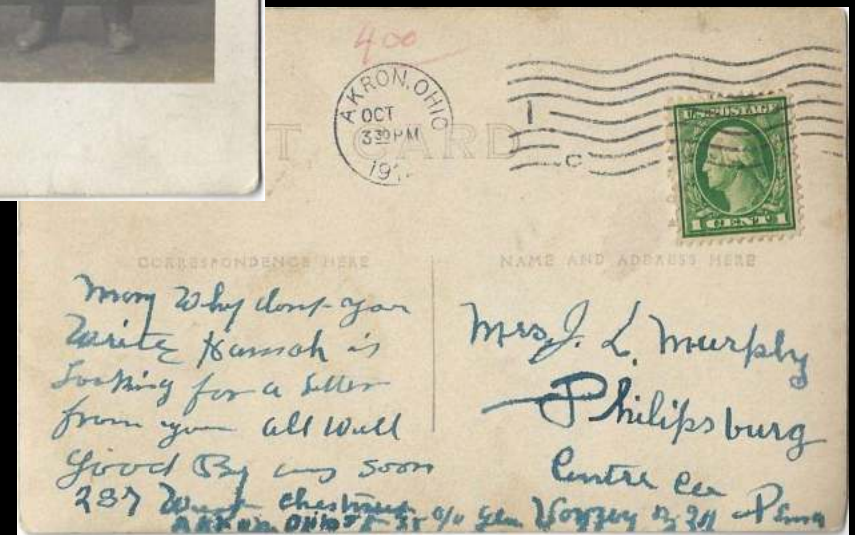 400
AKRON, OHIO
OCT
3 30 PM
191
POST CARD
U.S. POSTAGE
1 CENT
CORRESPONDENCE HERE
NAME AND ADDRESS HERE
Mary Why dont you
Write Hannah is
Looking for a letter
from you all well
Good By soon
237 West Chestnut
Akron Ohio
Mrs J. L. Murphy
Philipsburg
Centre Co
Penna